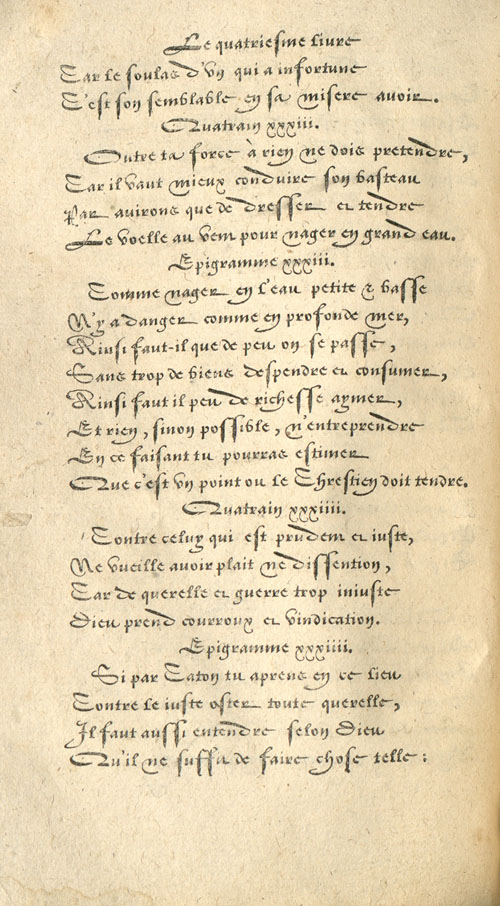 Le quatriesme livre
Car le soulas d'vn qui a infortune
C'est son semblable en sa misere avoir.
Quatrain xxxiii.
Outre ta force à rien ne dois pretendre,
Car il vaut mieux conduire son basteau
Par avirons que de dresser et tendre
Le voelle au vent pour nager en grand eau.
Epigramme xxxiii.
Comme nager en l'eau petite & basse
N'y a danger comme en profonde mer,
Ainsi faut-il que de peu on se passe,
Sans trop de biens despendre et consumer,
Ainsi faut il peu de richesse aymer,
Et rien, sinon possible, n'entreprendre
En ce faisant tu pourras estimer
Que c'est vn point ou le Chrestien doit tendre.
Quatrain xxxiiii.
Contre celuy qui est prudent et iuste,
Ne vueille avoir plait ne dissention,
Car de querelle et guerre trop iniuste
Dieu prend courroux et vindication.
Epigramme xxxiiii.
Si par Caton tu aprens en ce lieu
Contre le iuste oster toute querelle,
Il faut aussi entendre selon Dieu
Qu'il ne suffit de faire chose telle: